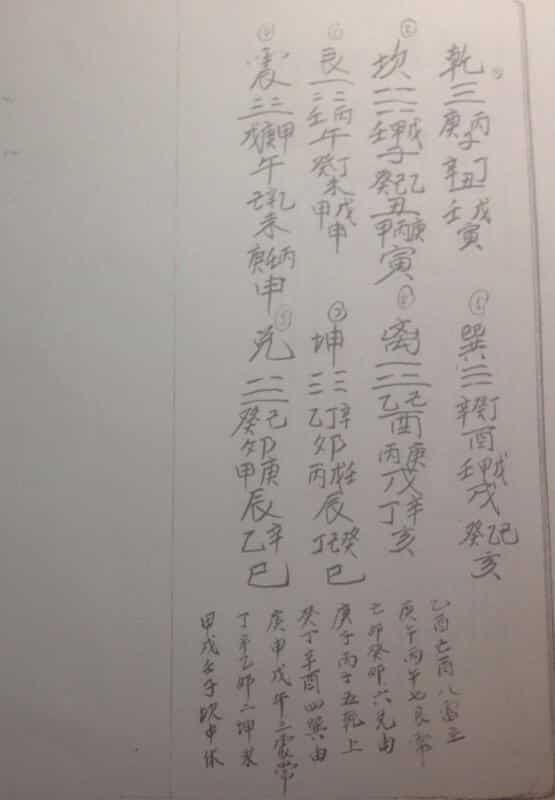 乾 ☰ 庚丙子 辛丁丑 壬戊寅
② 坎 壬甲戊子 癸己乙丑 甲丙庚寅
艮 壬丙午 癸丁未 甲戊申
震 戊庚甲午 己乙未 庚壬丙申
巽 辛癸丁酉 壬甲戊戌 癸乙己亥
离 乙己酉 丙庚戌 丁辛亥
坤 乙丁辛卯 丙戊壬辰 丁己癸巳
兑 癸己卯 甲庚辰 乙辛巳
乙酉己酉八离立
庚午丙午七艮常
己卯癸卯六兑由
庚子丙子五乾上
癸丁辛酉四巽由
庚甲戊午三震常
丁辛乙卯二坤求
甲戊壬子坎中休